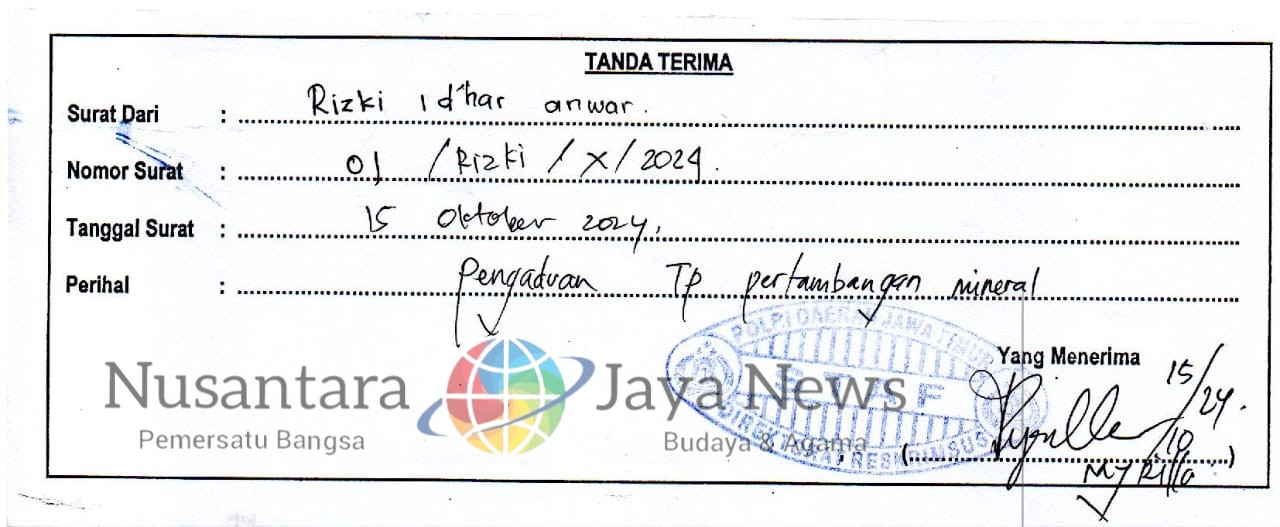 TANDA TERIMA
Surat Dari : Rizki Id'har anwar.
Nomor Surat : 01 / Rizki / X / 2024.
Tanggal Surat : 15 Oktober 2024.
Perihal : Pengaduan TP pertambangan mineral
POLRI DAERAH JAWA TIMUR
Yang Menerima
15/10/24.
Nusantara Jaya News
Pemersatu Bangsa Budaya & Agama
DIREKTORAT RESKRIMSUS